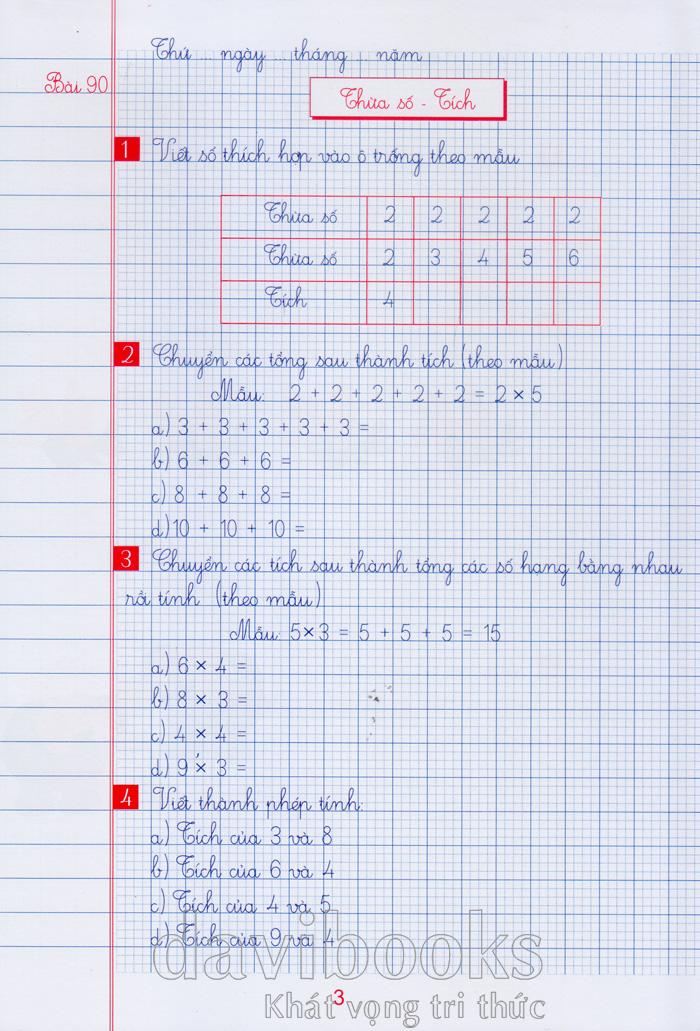 Thứ ... ngày ... tháng ... năm
Bài 90
Thừa số - Tích
1 Viết số thích hợp vào ô trống theo mẫu
Thừa số 2 2 2 2 2
Thừa số 2 3 4 5 6
Tích 4
2 Chuyển các tổng sau thành tích (theo mẫu)
Mẫu: 2 + 2 + 2 + 2 + 2 = 2 × 5
a) 3 + 3 + 3 + 3 + 3 =
b) 6 + 6 + 6 =
c) 8 + 8 + 8 =
d) 10 + 10 + 10 =
3 Chuyển các tích sau thành tổng các số hạng bằng nhau
rồi tính (theo mẫu)
Mẫu: 5 × 3 = 5 + 5 + 5 = 15
a) 6 × 4 =
b) 8 × 3 =
c) 4 × 4 =
d) 9 × 3 =
4 Viết thành phép tính:
a) Tích của 3 và 8
b) Tích của 6 và 4
c) Tích của 4 và 5
d) Tích của 9 và 4
davibooks
Khát vọng tri thức
3